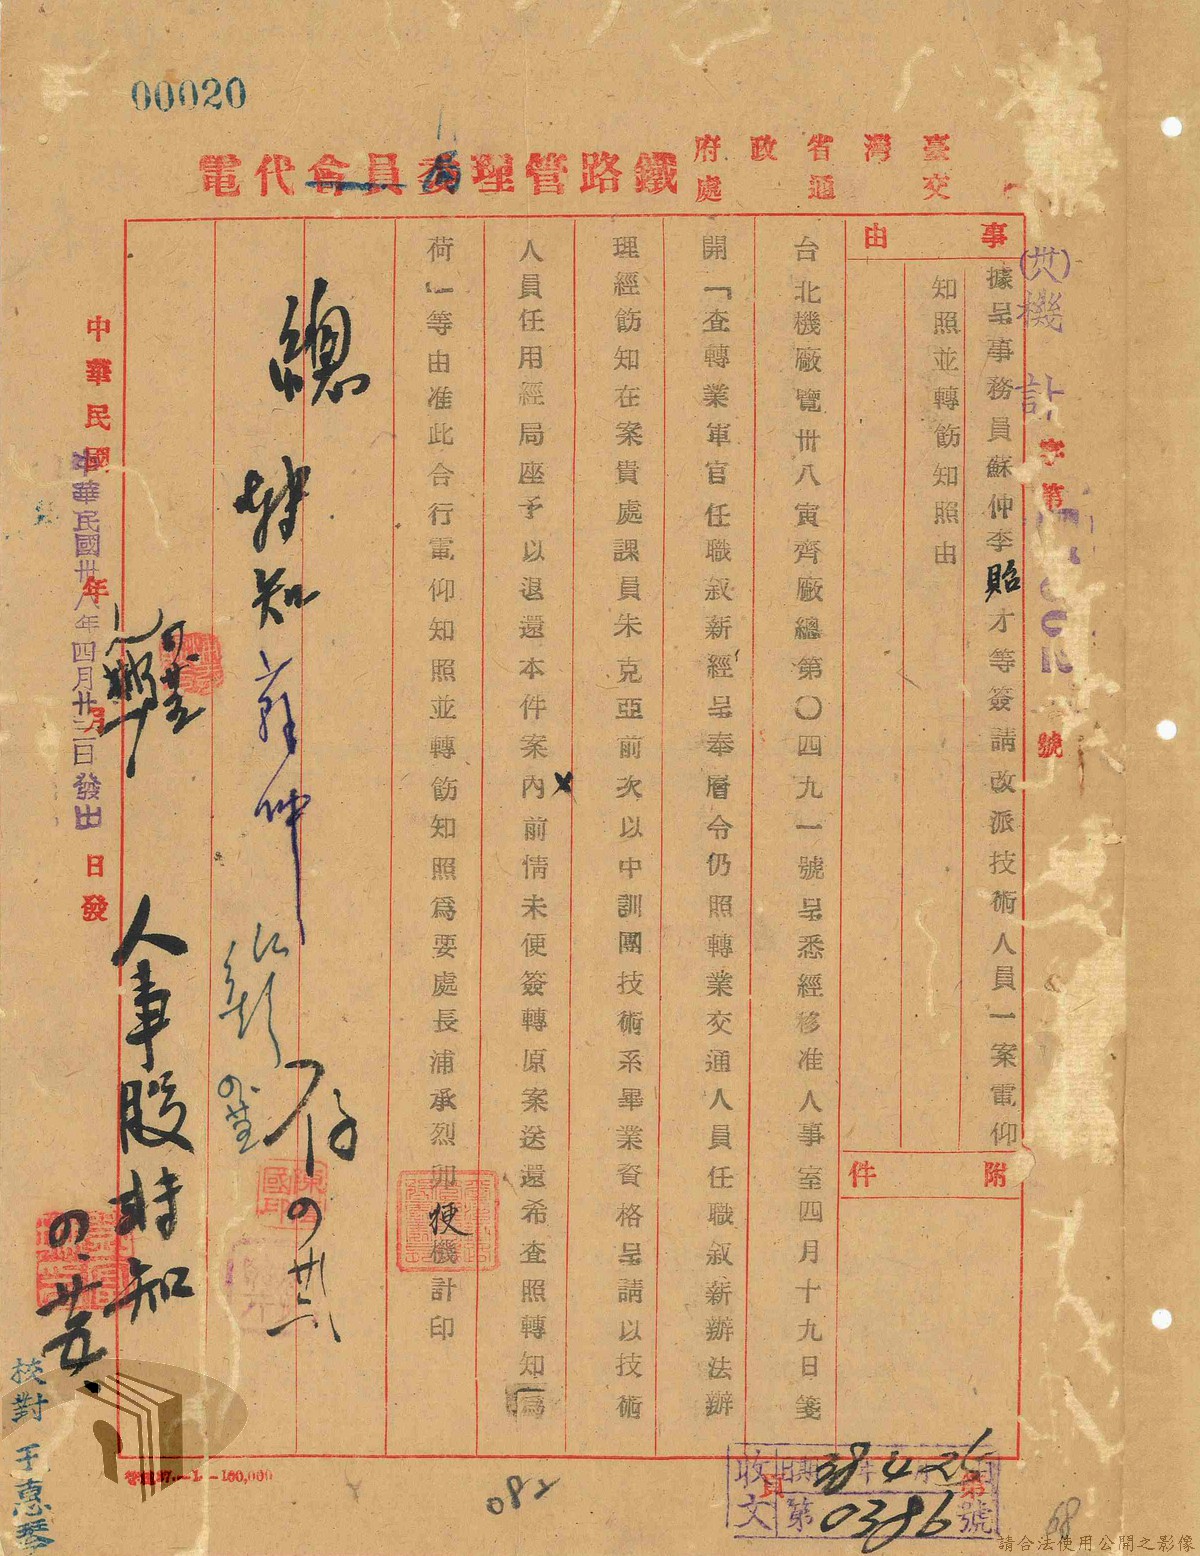 00020
臺灣省政府
交通處
鐵路管理委員會代電
(共)機計字第
號
事由
據呈事務員蘇仲李貽才等簽請改派技術人員一案電仰
知照並轉飭知照由
附件
台北機廠覽卅八寅齊廠總第〇四九一號呈悉經移准人事室四月十九日箋
開「查轉業軍官任職敘薪經呈奉層令仍照轉業交通人員任職敘薪辦法辦
理經飭知在案貴處課員朱克亞前次以中訓團技術系畢業資格呈請以技術
人員任用經局座予以退還本件案內前情未便簽轉原案送還希查照轉知為
荷」等由准此合行電仰知照並轉飭知照為要處長浦承烈卯梗機計印
總
轉知蘇仲
存
人事股轉知
中華民國 年 月 日發
中華民國卅八年四月廿二日發出
校對 于惠琴
管圖37.-1.-160,000
082
收文
日期 38年4月26日
第0386號
68
請合法使用公開之影像